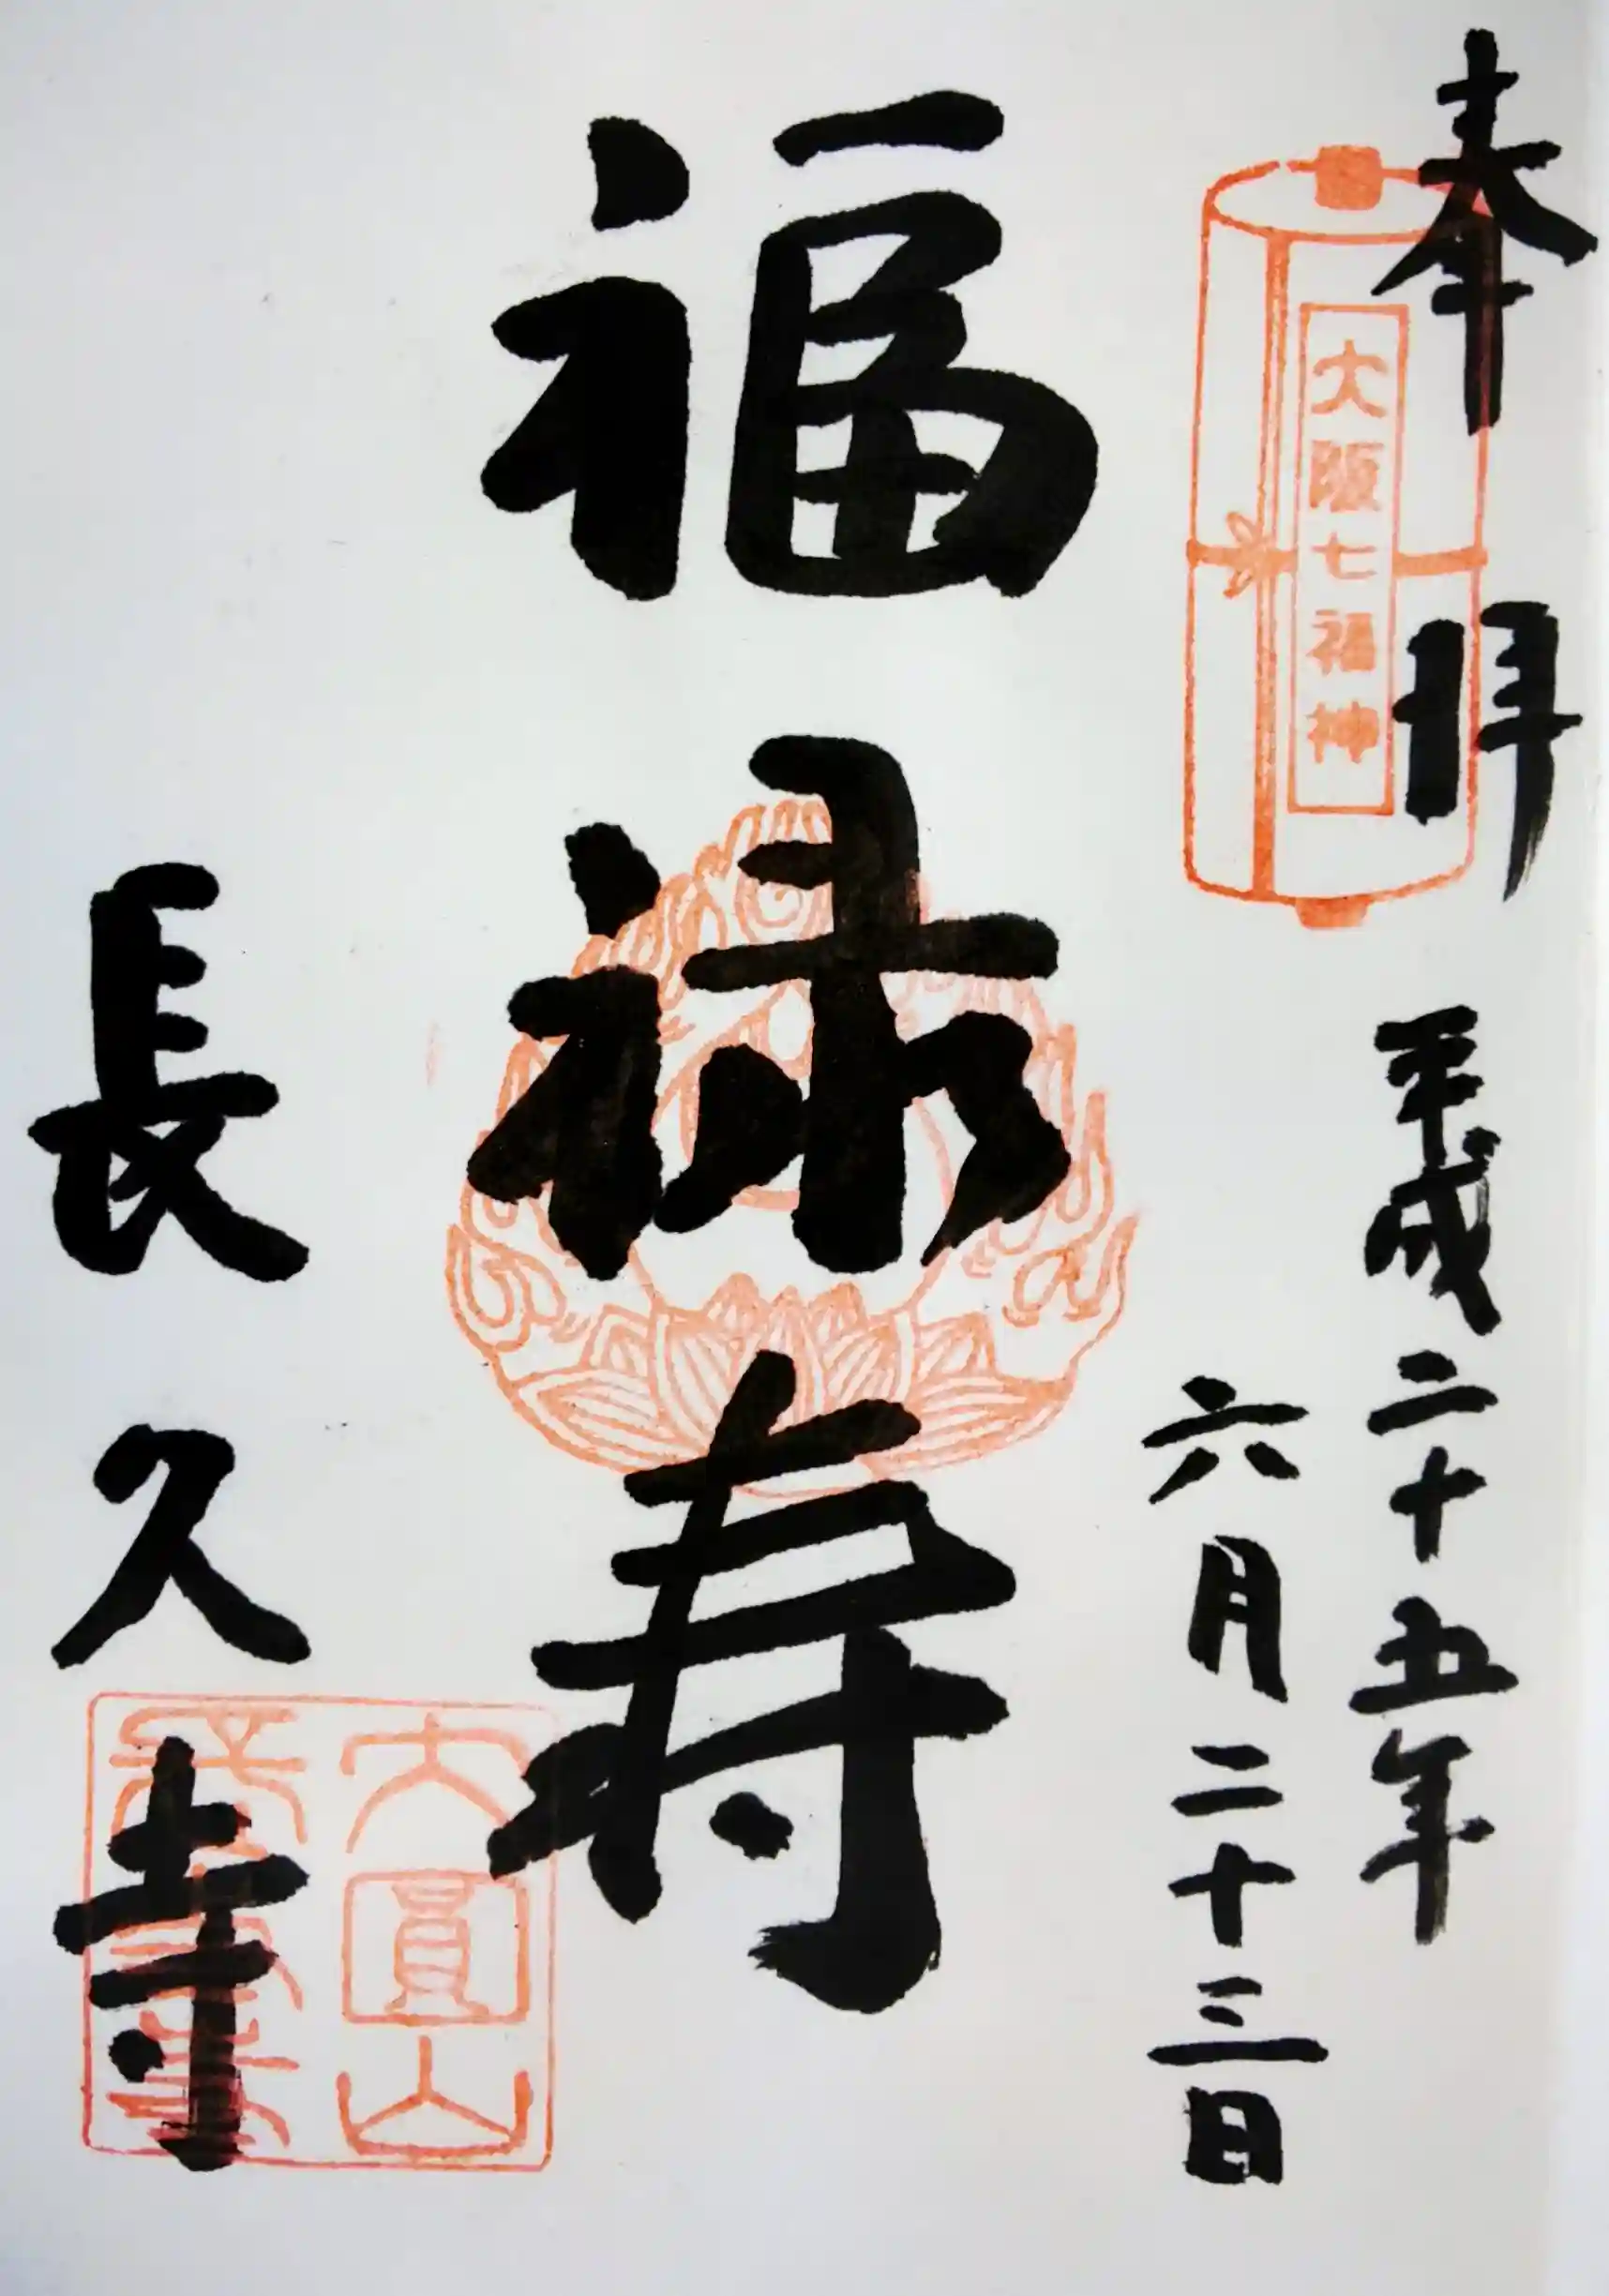 奉拝
大阪七福神
平成二十五年
六月二十三日
福禄寿
長久寺
大圓山